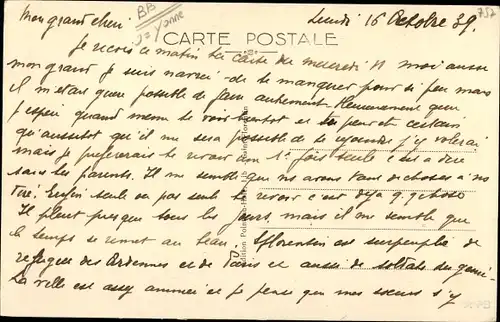 Lundi 16 Octobre 39.
Mon grand chéri.
BB
Yonne
757
CARTE POSTALE
Je reçois ce matin ta carte du mercredi 11 moi aussi
mon grand je suis navrée de te manquer pour si peu mais
il m'était guère possible de faire autrement. Heureusement que
j'espère quand même te voir bientôt et peut certain
qu'aussitôt qu'il me sera possible de te rejoindre j'y volerai
mais je préfèrerais te revoir une 1e fois seule c'est à dire
sans les parents. Il me semble que nous avons tant de choses à nous
dire. Enfin seule ou pas seule te revoir c'est déjà q.q. chose
Il pleut presque tous les jours, mais il me semble que
le temps se remet au beau. St Florentin est surpeuplé de
réfugiés des Ardennes et de Paris et aussi de soldats du génie.
La ville est assez animée et je pense que mes sœurs s'y